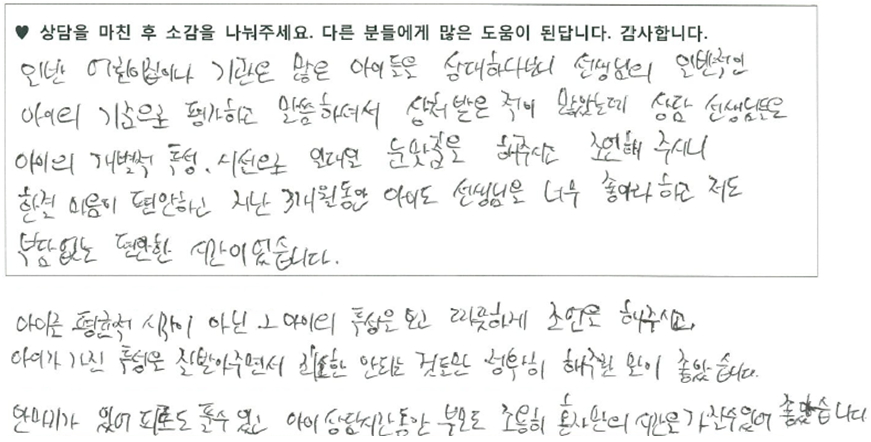 ♥ 상담을 마친 후 소감을 나눠주세요. 다른 분들에게 많은 도움이 된답니다. 감사합니다.
일반 어린이집이나 기관은 많은 아이들을 상대하다보니 선생님의 일반적인
아이의 기준으로 평가하고 말씀하셔서 상처받은 적이 많았는데 상담 선생님들은
아이의 개별적 특성, 시선으로 일대일 눈맞춤을 해주시고 조언해 주시니
한결 마음이 편안하고 지난 3개월동안 아이도 선생님을 너무 좋아라하고 저도
부담없는 편안한 시간이었습니다.
아이를 평균적 시각이 아닌 그 아이의 특성을 보고 따뜻하게 조언을 해주시고,
아이가 가진 특성을 잘 알아주면서 안되는 것들만 해주던 좋았습니다.
안마기가 있어 피로도 풀수 있고 아이 상담시간동안 부모도 조용히 혼자만의 시간을 가질수있어 좋았습니다